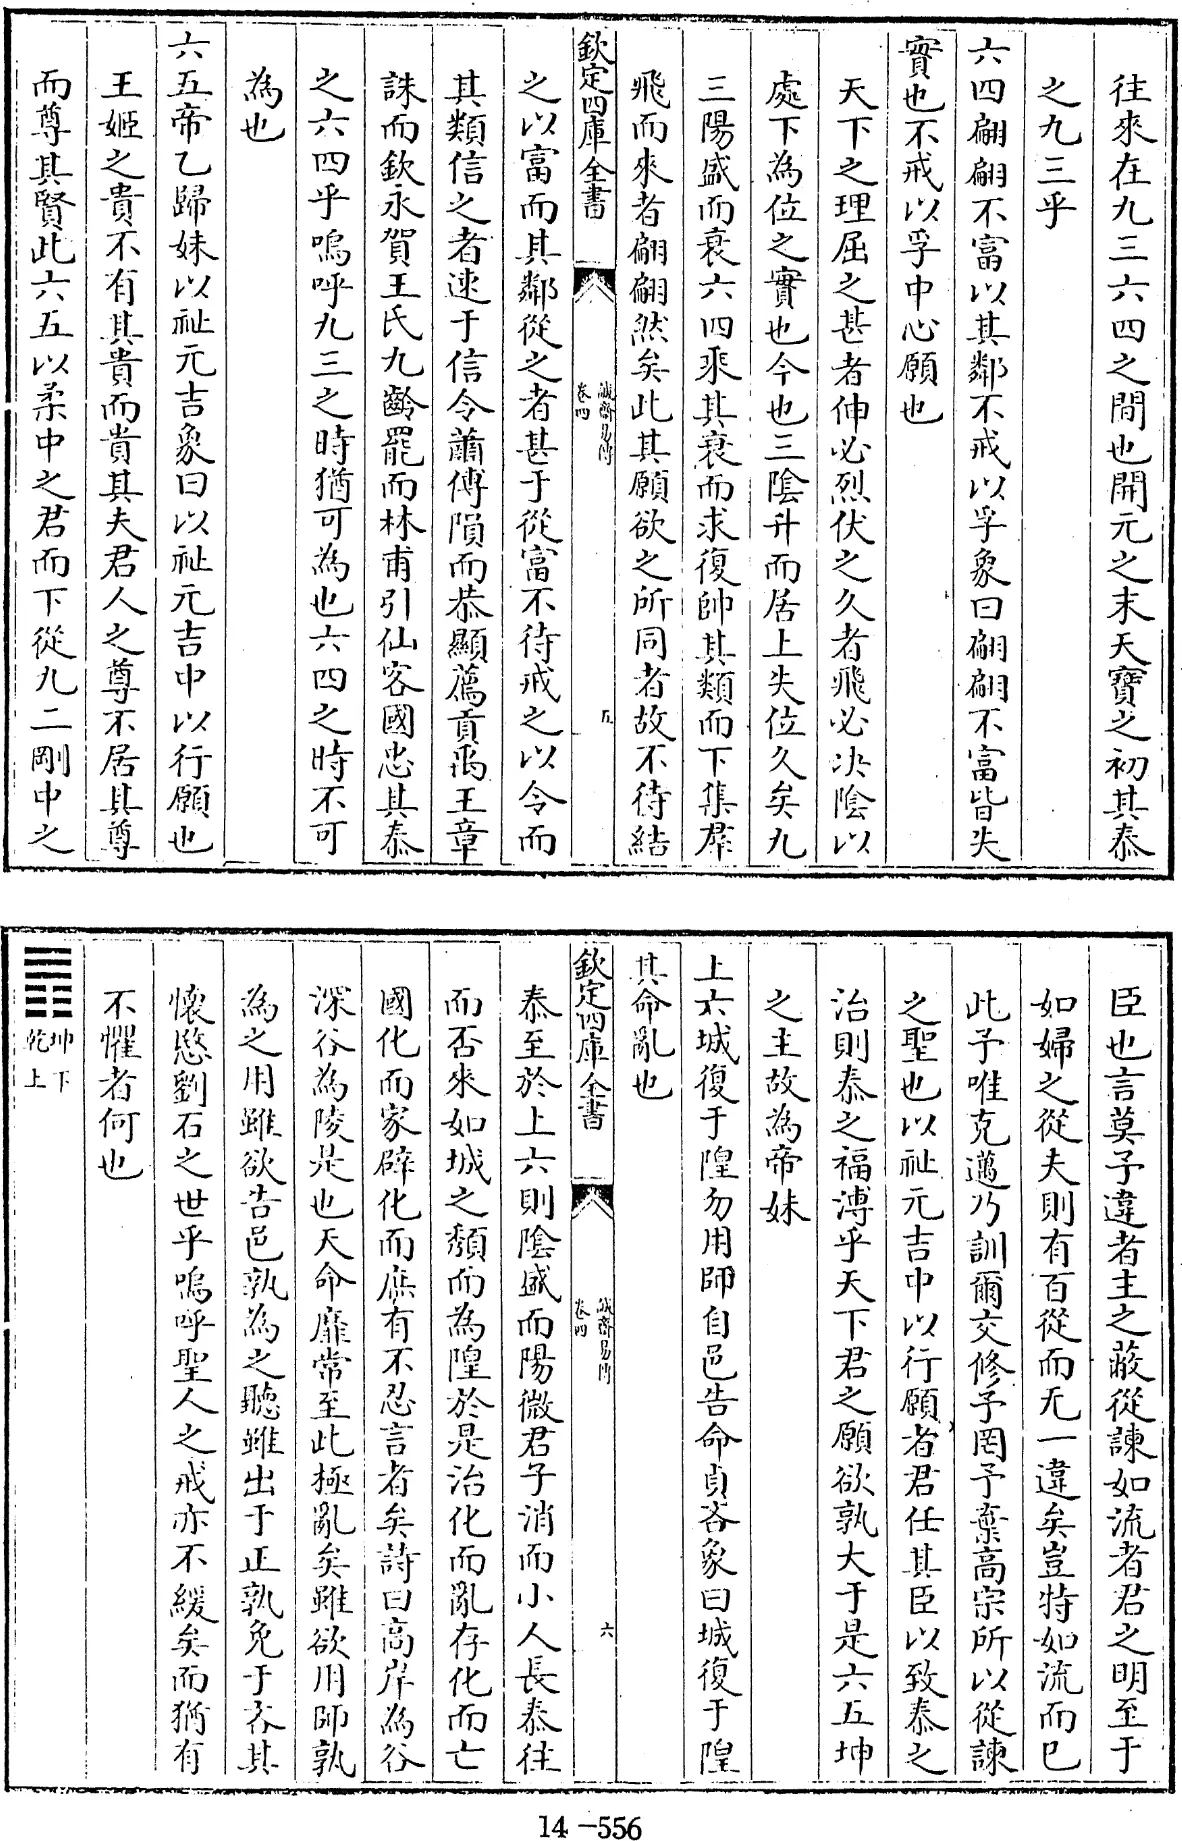 往來在九三六四之間也開元之末天寳之初其泰
之九三乎
六四翩翩不富以其鄰不戒以孚象曰翩翩不富皆失
實也不戒以孚中心願也
天下之理屈之甚者伸必烈伏之久者飛必决陰以
處下為位之實也今也三陰升而居上失位久矣九
三陽盛而衰六四乘其衰而求復帥其類而下集羣
飛而來者翩翩然矣此其願欲之所同者故不待結
欽定四庫全書
誠齋易傳
卷四
五
之以富而其鄰從之者甚于從富不待戒之以令而
其類信之者速于信令蕭傅隕而恭顯薦貢禹王章
誅而欽永賀王氏九齡罷而林甫引仙客國忠其泰
之六四乎嗚呼九三之時猶可為也六四之時不可
為也
六五帝乙歸妹以祉元吉象曰以祉元吉中以行願也
王姬之貴不有其貴而貴其夫君人之尊不居其尊
而尊其賢此六五以柔中之君而下從九二剛中之
臣也言莫予違者主之蔽從諫如流者君之明至于
如婦之從夫則有百從而无一違矣豈特如流而已
此予唯克邁乃訓爾交修予罔予棄高宗所以從諫
之聖也以祉元吉中以行願者君任其臣以致泰之
治則泰之福溥乎天下君之願欲孰大于是六五坤
之主故為帝妹
上六城復于隍勿用師自邑告命貞吝象曰城復于隍
其命亂也
欽定四庫全書
誠齋易傳
卷四
六
泰至於上六則陰盛而陽微君子消而小人長泰往
而否來如城之頹而為隍於是治化而亂存化而亡
國化而家辟化而庶有不忍言者矣詩曰高岸為谷
深谷為陵是也天命靡常至此極亂矣雖欲用師孰
為之用雖欲告邑孰為之聽雖出于正孰免于吝其
懷愍劉石之世乎嗚呼聖人之戒亦不緩矣而猶有
不懼者何也
坤下
乾上
14-556